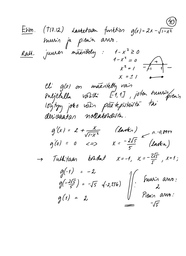 90
Esim. (T17.12) Lasketaan funktion g(x) = 2x - √1-x²
suurin ja pienin arvo.
Ratk. Juuren määrittely: 1-x² ≥ 0
1-x² = 0
x² = 1
x = ±1
Eli g(x) on määritelty vain
välillä [-1,1], joten suurin/pienin
löytyy joko välin päätepisteistä tai
derivaatan nollakohdista.
g'(x) = 2 + x/√1-x² (laske)
g'(x) = 0 <=> x = -2√5/5 (laske)
→ Tutkitaan kohdat x=-1, x=-2√5/5, x=1;
g(-1) = -2
g(-2√5/5) = -√5 (-2,236)
g(1) = 2
Suurin arvo:
2
Pienin arvo:
-√5